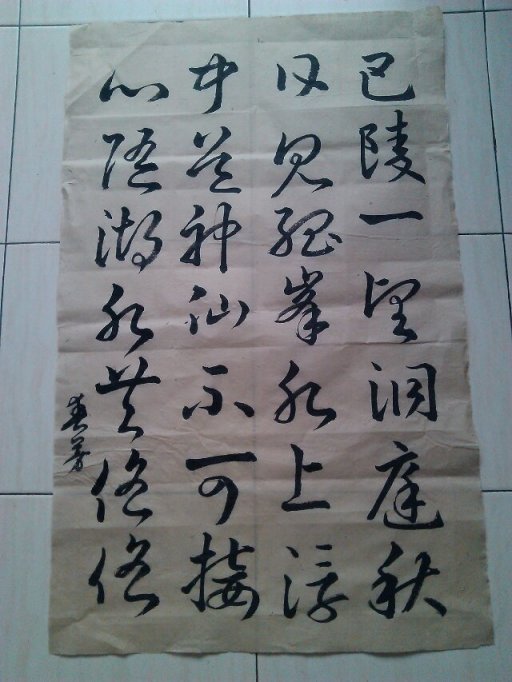 巴陵一望洞庭秋
日見孤峯水上浮
聞道神仙不可接
心隨湖水共悠悠
春芳